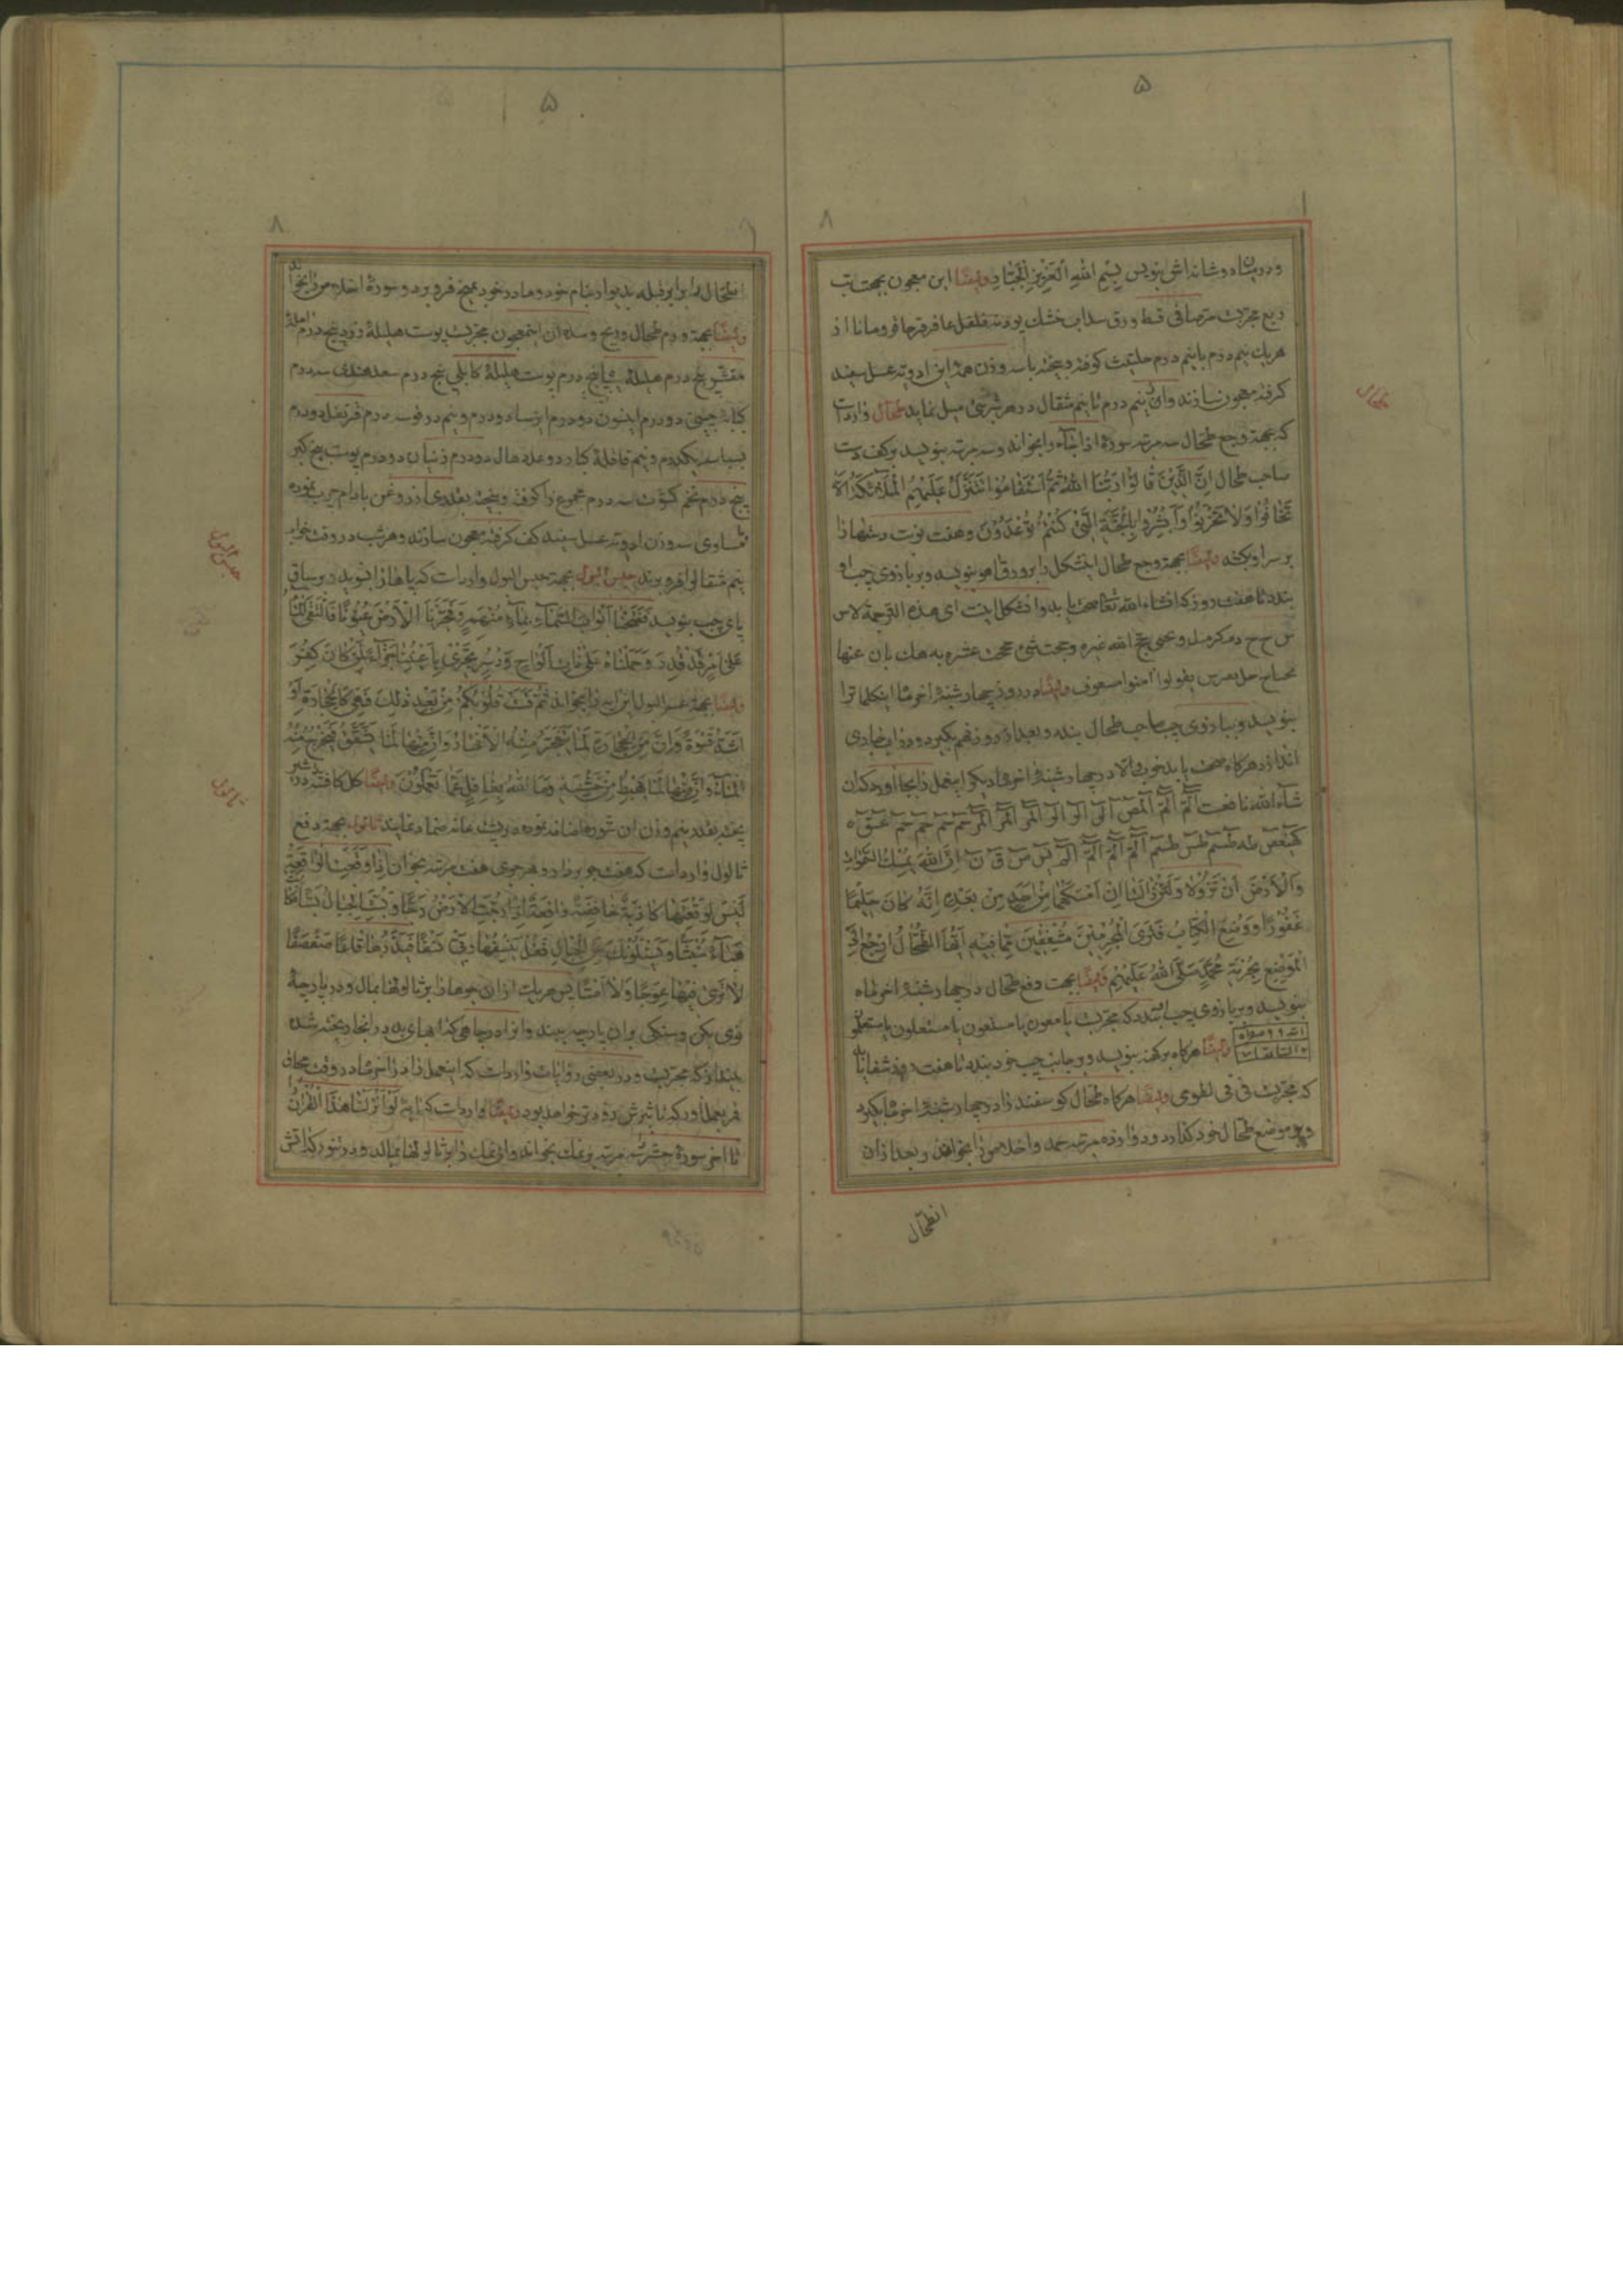 ۵
۸
و در میان دو شانه‌اش بنویس بِسْمِ اللهِ الْعَزِیزِ الْجَبَّارِ وایضًا این معجون بجهت تب
ربع مجربست مرصافی قسط ورق سداب خشک پودنه فلفل عاقرقرحا قرومانا از
هریک نیم درم با نیم درم حلتیت کوفته و بیخته با سه وزن همهٔ این ادویه عسل سفید
کرفته معجون سازند و از نیم درم تا نیم مثقال در هر شربتی میل نماید طحال واردست
که بجهة وجع طحال سه مرتبه سورهٔ اذا جآء را بخواند و سه مرتبه بنویسد بر کف دست
صاحب طحال اِنَّ الَّذِینَ قَالُوا رَبُّنَا اللهُ ثُمَّ اسْتَقَامُوا تَتَنَزَّلُ عَلَیْهِمُ الْمَلٰئِکَةُ اَلَّا
تَخَافُوا وَلَا تَحْزَنُوا وَاَبْشِرُوا بِالْجَنَّةِ الَّتِی کُنْتُمْ تُوعَدُونَ و هفت نوبت دستها را
بر سر او بکشد وایضًا بجهة وجع طحال اینشکل را بر ورق آهو بنویسد و بر بازوی چپ او
بندد تا هفت روز که انشاء الله تعا صحت یابد و انشکل اینست
بنویسد و ببازوی چپ صاحب طحال بندد و بعد از دو روز هم بکیرد و در اب جاری
اندازد هرکاه صحت یابد خوب والا در چهارشنبهٔ اخر ماه دیکر اینعمل را بجا آورد که ان
شآء الله نافعست الٓمٓ الٓمٓ الٓمٓصٓ الٓرٰ الٓرٰ الٓرٰ الٓمٓرٰ حٰمٓ حٰمٓ حٰمٓ حٰمٓ عٓسٓقٓ
کٓهٰیٰعٓصٓ طٰه طٰسٓمٓ طٰسٓ طٰسٓمٓ الٓمٓ الٓمٓ الٓمٓ الٓمٓ یٰسٓ صٓ قٓ نٓ اِنَّ اللهَ یُمْسِکُ السَّمٰوَاتِ
وَالْاَرْضَ اَنْ تَزُولَا وَلَئِنْ زَالَتَا اِنْ اَمْسَکَهُمَا مِنْ اَحَدٍ مِنْ بَعْدِهِ اِنَّهُ کَانَ حَلِیمًا
غَفُورًا وَوُضِعَ الْکِتَابُ فَتَرَی الْمُجْرِمِینَ مُشْفِقِینَ مِمَّا فِیهِ اَیُّهَا الطُّحَالُ ارْجِعْ اِلَی
الْمَوْضِعِ بِحُرْمَةِ مُحَمَّدٍ صَلَّی اللهُ عَلَیْهِمْ وایضًا بجهت دفع طحال در چهارشنبهٔ اخر ماه
بنویسد و بر بازوی چپ بندد که مجربست
وایضًا هرکاه بر کهنه بنویسد و بر جانب چپ خود بندد تا هفت روز شفا یابد
که مجربست وایضًا هرکاه طحال کوسفند را در چهارشنبهٔ اخر ماه بکیرد
و بر موضع طحال خود کذارد و دوازده مرتبه حمد و اخلاص را بخواند و بعد از ان
انطحال
طحال
۵
۸
انطحال را برابر قبله بدیوار بنام خود و مادر خود بمیخ فرو برد و سورهٔ اخلاص را بخواند
وایضًا بجهة ورم طحال و ریح و سدهٔ ان اینمعجون مجربست پوست هلیلهٔ زرد پنج درم املهٔ
مقشر پنج درم هلیلهٔ سیاه پنج درم پوست هلیلهٔ کابلی پنج درم سعد هندی سه درم
کبابه چینی دو درم انیسون دو درم ایرسا دو درم و نیم قرنفل دو درم
بسباسه یکدرم و نیم قاقلهٔ کبار دو عدد هال دو درم رنیان دو درم پوست بیخ کبر
پنج درم تخم کشوث سه درم مجموع را کوفته و بیخته بقدری از روغن بادام چرب نموده
مساوی سه وزن ادویه عسل سفید کف کرفته معجون سازند و هر شب در وقت خواب
نیم مثقال فرو برند حبس البول بجهة حبس البول واردست که پاها را بشوید و بر ساق
پای چپ بنویسد فَفَتَحْنَا اَبْوَابَ السَّمَآءِ بِمَآءٍ مُنْهَمِرٍ وَفَجَّرْنَا الْاَرْضَ عُیُونًا فَالْتَقَی الْمَآءُ
عَلٰی اَمْرٍ قَدْ قُدِرَ وَحَمَلْنَاهُ عَلٰی ذَاتِ اَلْوَاحٍ وَدُسُرٍ تَجْرِی بِاَعْیُنِنَا جَزَآءً لِمَنْ کَانَ کُفِرَ
وایضًا بجهة عسر البول این ایه را بخواند ثُمَّ قَسَتْ قُلُوبُکُمْ مِنْ بَعْدِ ذٰلِکَ فَهِیَ کَالْحِجَارَةِ اَوْ
اَشَدُّ قَسْوَةً وَاِنَّ مِنَ الْحِجَارَةِ لَمَا یَتَفَجَّرُ مِنْهُ الْاَنْهَارُ وَاِنَّ مِنْهَا لَمَا یَشَّقَّقُ فَیَخْرُجُ مِنْهُ
الْمَآءُ وَاِنَّ مِنْهَا لَمَا یَهْبِطُ مِنْ خَشْیَةِ اللهِ وَمَا اللهُ بِغَافِلٍ عَمَّا تَعْمَلُونَ وایضًا
پخته بقدر نیم وزن ان شوره اضافه نموده بر پشت عانه ضماد نمایند ثالول بجهة دفع
ثالول واردست که هفت جو بردارد و بر هر جوی هفت مرتبه بخواند اِذَا وَقَعَتِ الْوَاقِعَةُ
لَیْسَ لِوَقْعَتِهَا کَاذِبَةٌ خَافِضَةٌ رَافِعَةٌ اِذَا رُجَّتِ الْاَرْضُ رَجًّا وَبُسَّتِ الْجِبَالُ بَسًّا فَکَانَتْ
هَبَآءً مُنْبَثًّا وَیَسْئَلُونَکَ عَنِ الْجِبَالِ فَقُلْ یَنْسِفُهَا رَبِّی نَسْفًا فَیَذَرُهَا قَاعًا صَفْصَفًا
لَا تَرٰی فِیهَا عِوَجًا وَلَا اَمْتًا پس هریک از ان جوها را بر ثالولها بمال و در پارچهٔ
نوی بکن و سنکی بر ان پارچه ببند و انرا در چاهی که ابهای بد در انجا ریخته شده
بینداز که مجربست و در بعضی روایات واردست که اینعمل را در اخر ماه در وقت محاق
قمر بعمل آورد که تاثیرش زودتر خواهد بود وایضًا واردست که ایهٔ لَوْ اَنْزَلْنَا هٰذَا الْقُرْاٰنَ
تا اخر سورهٔ حشر سه مرتبه بر نمک بخواند و ان نمک را بر ثالولها بمالد و در تنور کذ اتش
حبس البول
ثالول